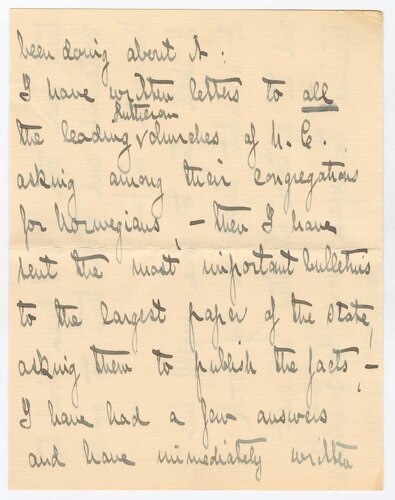 been doing about it :
I have written letters to all
Lutheran
the leading churches of N. C.
asking among their congregations
for Norwegians, – then I have
sent the most important bulletins
to the largest paper of the state,
asking them to publish the facts, –
I have had a few answers
and have immediately written